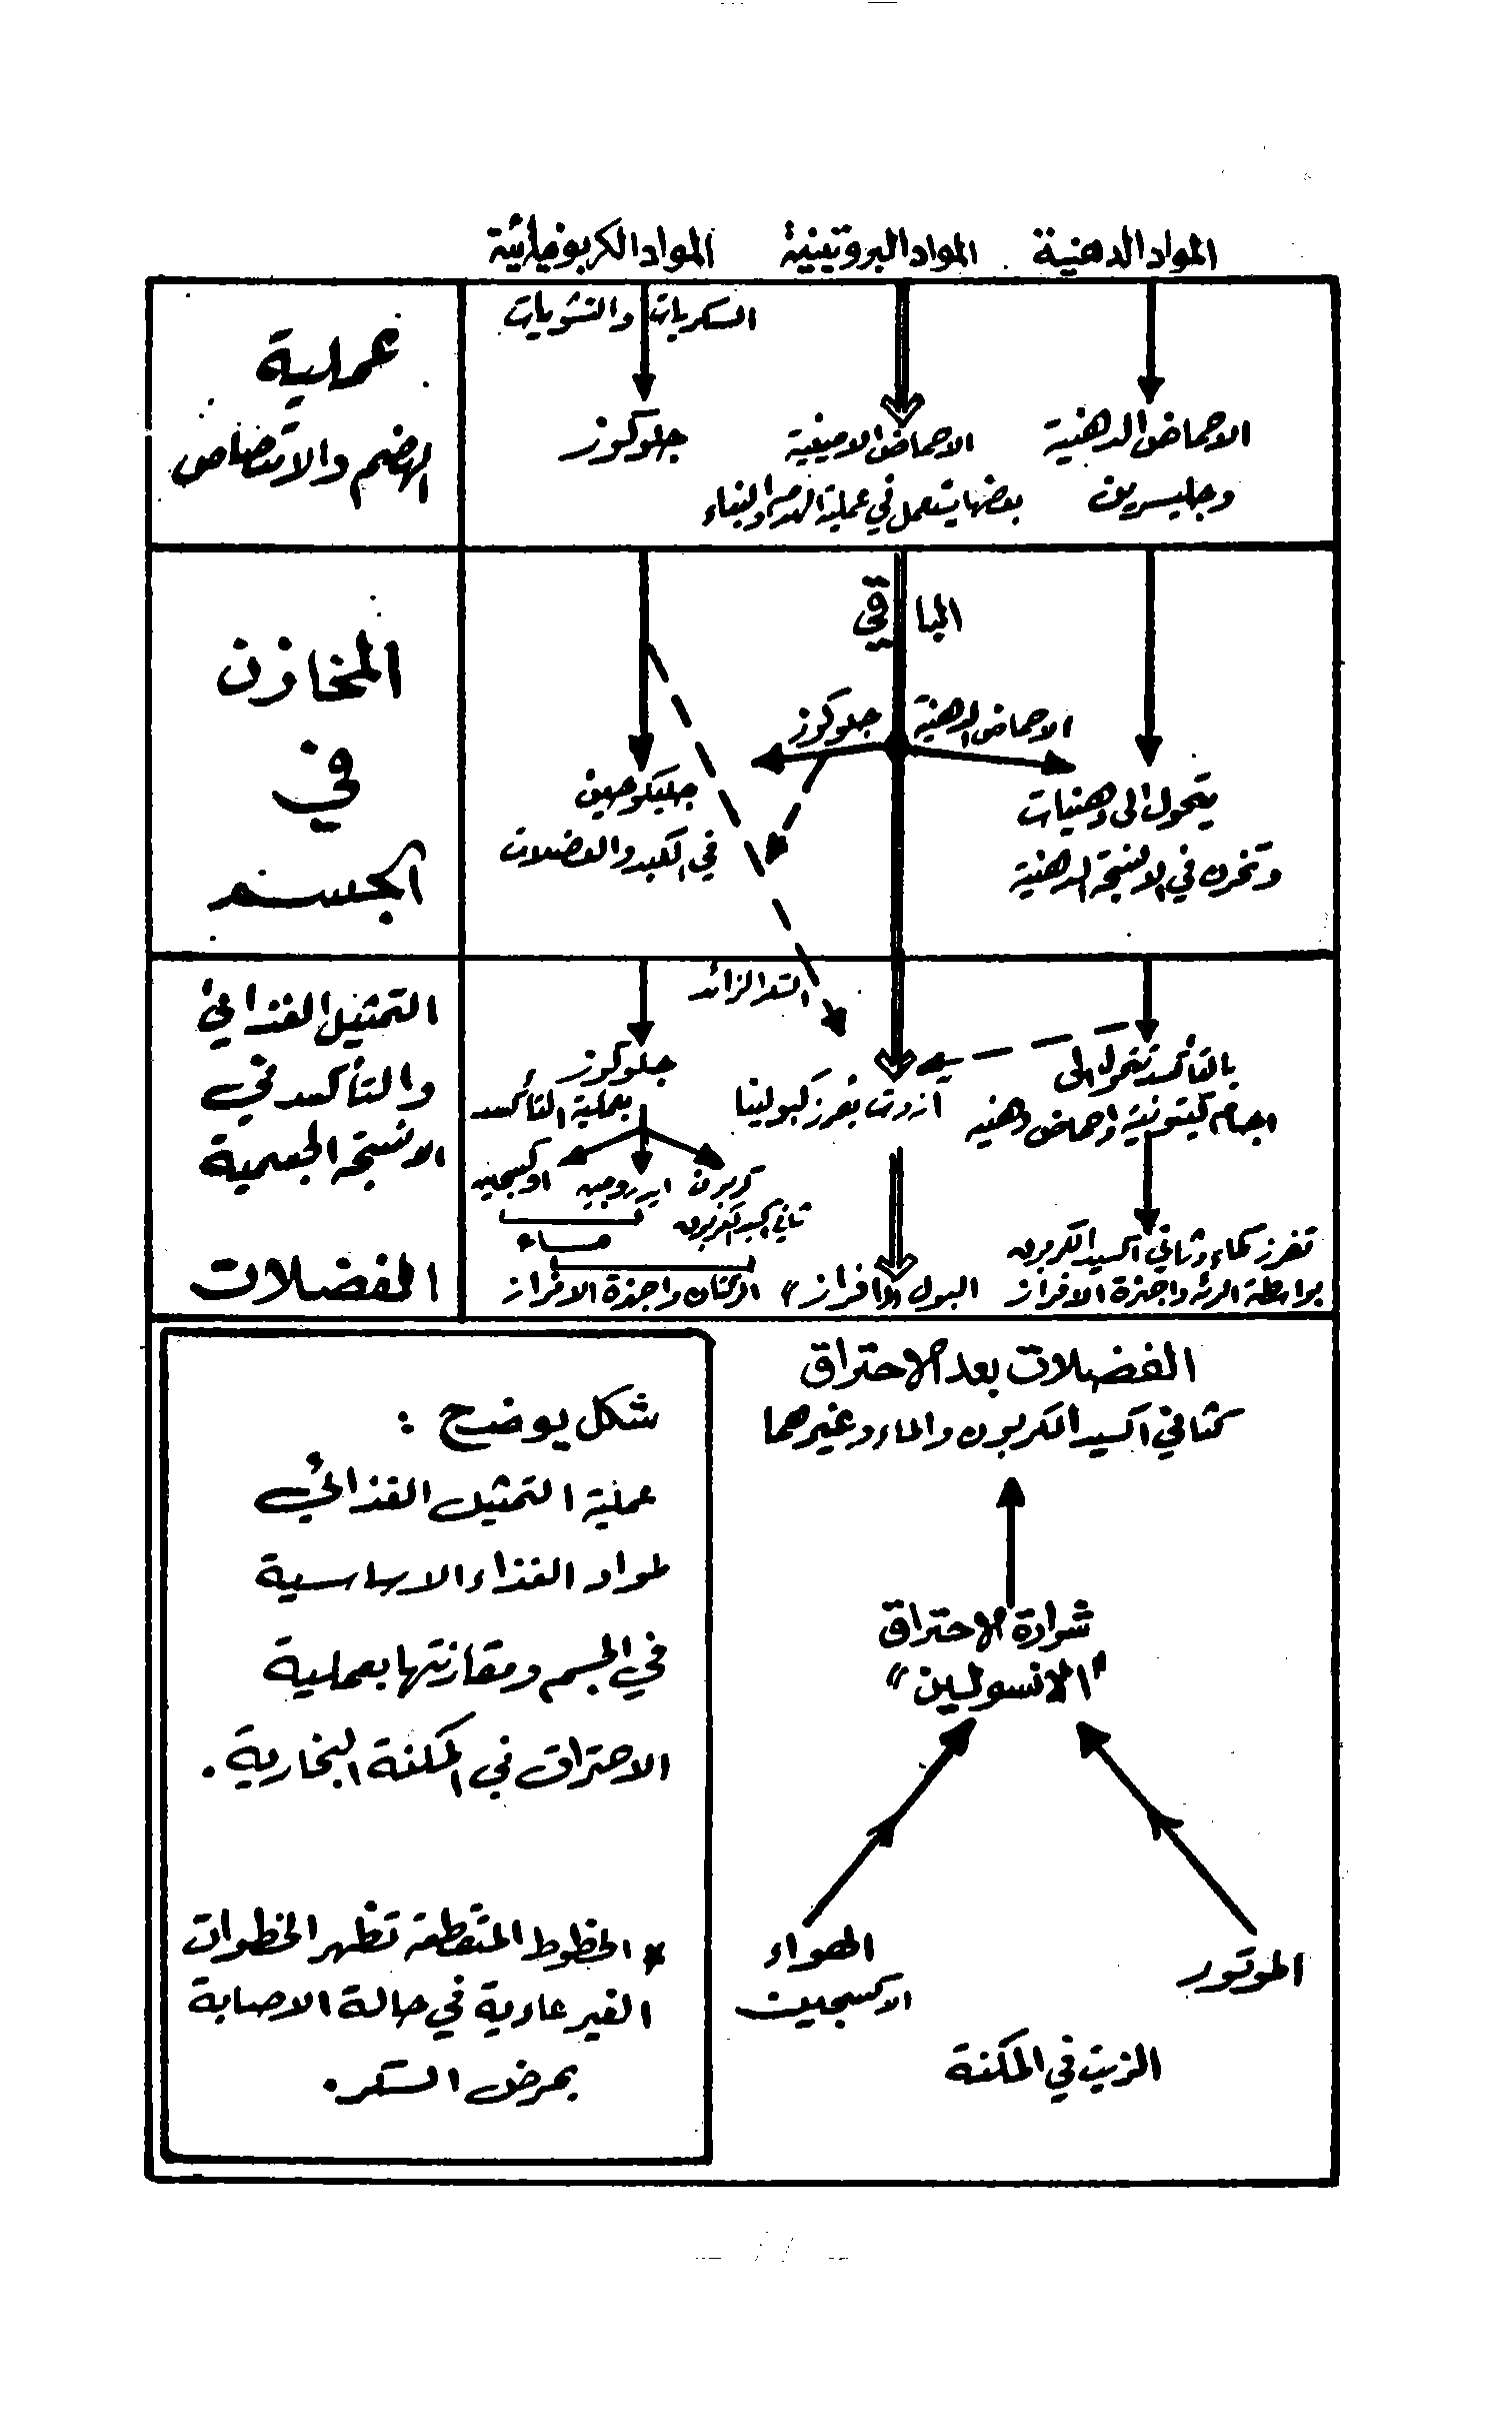 المواد الدهنية
المواد البروتينية
المواد الكربوهيدراتية
عملية
الهضم والامتصاص
السكريات والنشويات
الاحماض الدهنية
وجليسرين
الاحماض الامينية
بعضها يستعمل في عملية الهدم والبناء
جلوكوز
المخازن
في
الجسم
الباقي
الاحماض الدهنية
جلوكوز
يتحول الى دهنيات
وتخزن في الانسجة الدهنية
جليكوجين
في الكبد والعضلات
التمثيل الغذائي
والتأكسد في
الانسجة الجسمية
بالتأكسد تتحول الى
اجسام كيتونية واحماض دهنيه
ازوت يفرز كبولينا
السكر الزائد
جلوكوز
بعملية التأكسد
كربون
ايدروجين
اوكسجين
ثاني اكسيد الكربون
ماء
الفضلات
تفرز كماء وثاني اكسيد الكربون
بواسطة الرئه واجهزة الافراز
البول (الافراز)
الرئتان واجهزة الافراز
الفضلات بعد الاحتراق
كثاني اكسيد الكربون والماء وغيرهما
شرارة الاحتراق
"الانسولين"
الهواء
الاكسجين
الموتور
الزيت في المكنة
شكل يوضح :
عملية التمثيل الغذائي
لمواد الغذاء الاساسية
في الجسم ومقارنتها بعملية
الاحتراق في المكنة البخارية .
* الخطوط المتقطعة تظهر الخطوات
الغير عادية في حالة الاصابة
بمرض السكر .